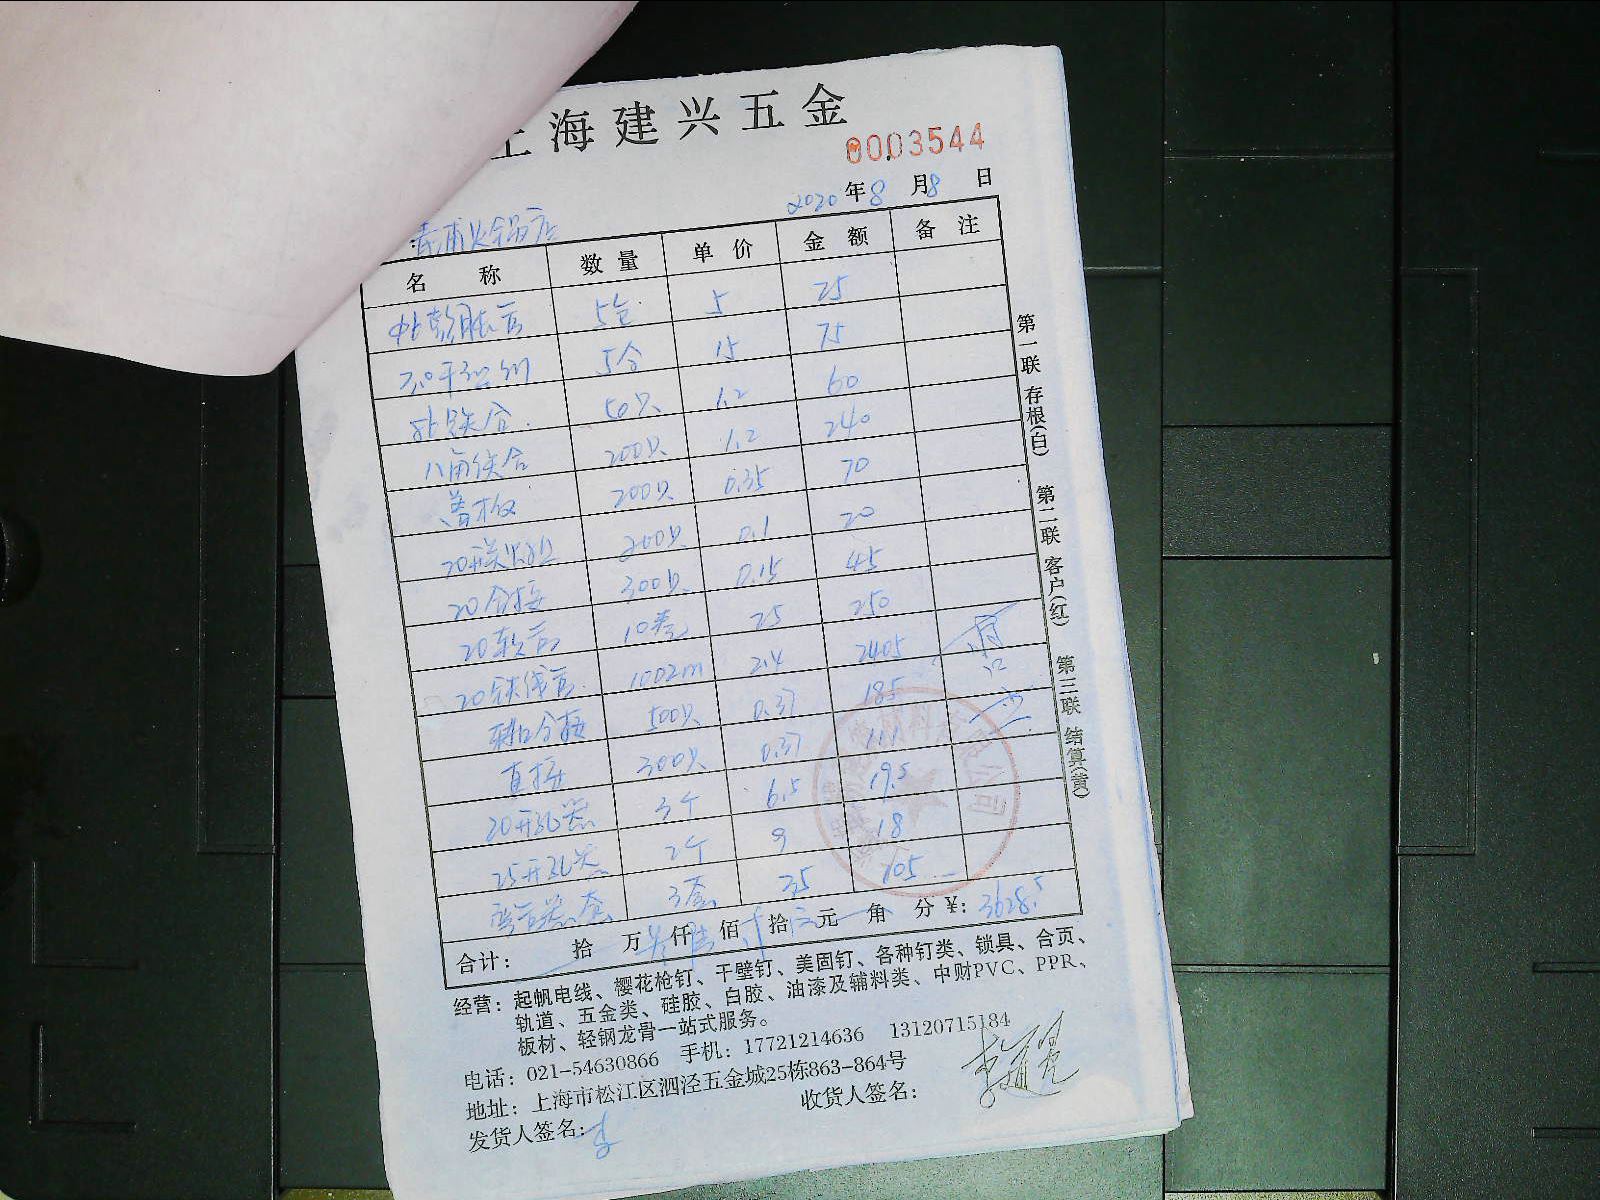 上海建兴五金
0003544
2020年8月8日
青浦火锅店
名 称 数 量 单 价 金 额 备 注
5仓 5 25
5合 15 75
50只 1.2 60
八角铁合 200只 1.2 240
盖板 200只 0.35 70
200只 0.1 20
300只 0.15 45
20软管 10卷 25 250
20铁线管 1002m 2.4 2405
500只 0.37 185
直接 300只 0.37 111
20开孔器 3个 6.5 19.5
25开孔器 2个 9 18
弯管器套 3套 35 105
合计： 拾 万 仟 佰 拾 元 角 分 ¥: 3628.5
经营：起帆电线、樱花枪钉、干壁钉、美固钉、各种钉类、锁具、合页、
轨道、五金类、硅胶、白胶、油漆及辅料类、中财PVC、PPR、
板材、轻钢龙骨一站式服务。
电话：021-54630866 手机：17721214636 13120715184
地址：上海市松江区泗泾五金城25栋863-864号
发货人签名：李 收货人签名：
第一联 存根(白) 第二联 客户(红) 第三联 结算(黄)